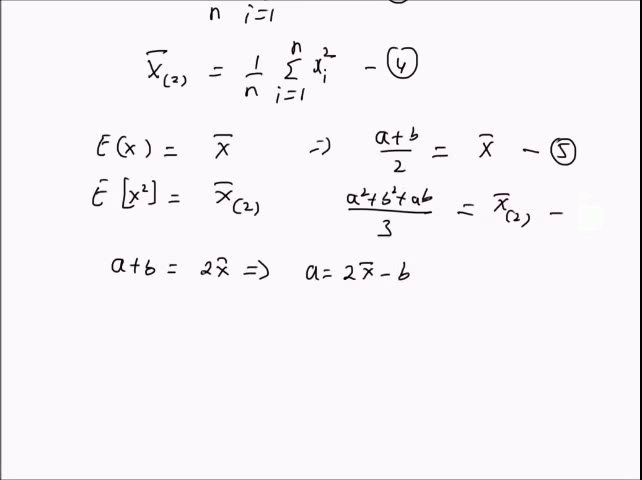 n i=1
x̄(2) = 1/n Σ(i=1 to n) xᵢ² - ④
E(x) = x̄ => (a+b)/2 = x̄ - ⑤
E[x²] = x̄(2) (a²+b²+ab)/3 = x̄(2) -
a+b = 2x̄ => a = 2x̄ - b